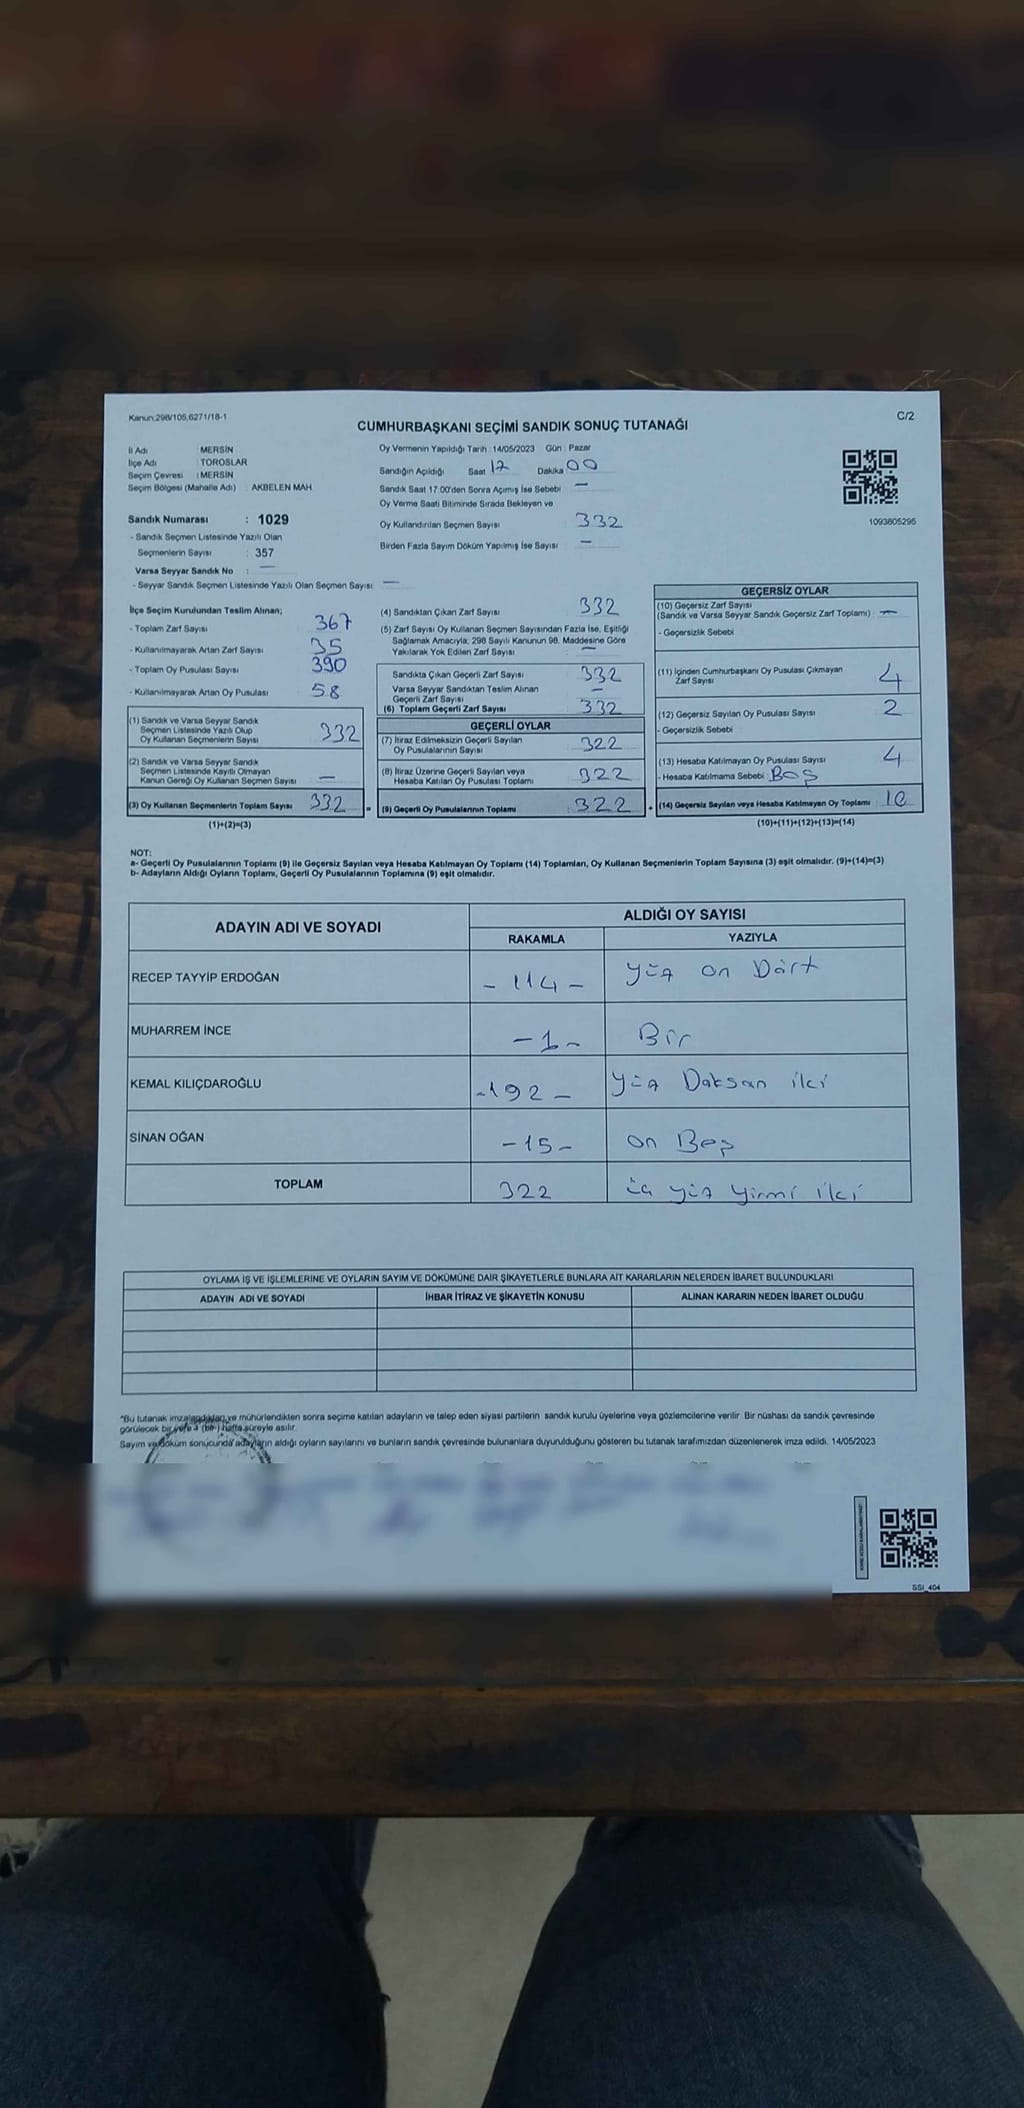 Kanun;298/105,6271/18-1
C/2
CUMHURBAŞKANI SEÇİMİ SANDIK SONUÇ TUTANAĞI
İl Adı : MERSİN
İlçe Adı : TOROSLAR
Seçim Çevresi : MERSİN
Seçim Bölgesi (Mahalle Adı) : AKBELEN MAH
Sandık Numarası : 1029
- Sandık Seçmen Listesinde Yazılı Olan
Seçmenlerin Sayısı : 357
Varsa Seyyar Sandık No : —
- Seyyar Sandık Seçmen Listesinde Yazılı Olan Seçmen Sayısı: —
Oy Vermenin Yapıldığı Tarih : 14/05/2023 Gün : Pazar
Sandığın Açıldığı Saat 17 Dakika 00
Sandık Saat 17:00'den Sonra Açımış İse Sebebi : —
Oy Verme Saati Bitiminde Sırada Bekleyen ve
Oy Kullandırılan Seçmen Sayısı : 332
Birden Fazla Sayım Döküm Yapılmış İse Sayısı : —
1093805295
İlçe Seçim Kurulundan Teslim Alınan;
- Toplam Zarf Sayısı : 367
- Kullanılmayarak Artan Zarf Sayısı : 35
- Toplam Oy Pusulası Sayısı : 390
- Kullanılmayarak Artan Oy Pusulası : 58
(1) Sandık ve Varsa Seyyar Sandık
Seçmen Listesinde Yazılı Olup
Oy Kullanan Seçmenlerin Sayısı : 332
(2) Sandık ve Varsa Seyyar Sandık
Seçmen Listesinde Kayıtlı Olmayan
Kanun Gereği Oy Kullanan Seçmen Sayısı : —
(3) Oy Kullanan Seçmenlerin Toplam Sayısı : 332
(1)+(2)=(3)
(4) Sandıktan Çıkan Zarf Sayısı : 332
(5) Zarf Sayısı Oy Kullanan Seçmen Sayısından Fazla İse, Eşitliği
Sağlamak Amacıyla, 298 Sayılı Kanunun 98. Maddesine Göre
Yakılarak Yok Edilen Zarf Sayısı : —
Sandıkta Çıkan Geçerli Zarf Sayısı : 332
Varsa Seyyar Sandıktan Teslim Alınan
Geçerli Zarf Sayısı : —
(6) Toplam Geçerli Zarf Sayısı : 332
GEÇERLİ OYLAR
(7) İtiraz Edilmeksizin Geçerli Sayılan
Oy Pusulalarının Sayısı : 322
(8) İtiraz Üzerine Geçerli Sayılan veya
Hesaba Katılan Oy Pusulası Toplamı : 322
= (9) Geçerli Oy Pusulalarının Toplamı : 322
GEÇERSİZ OYLAR
(10) Geçersiz Zarf Sayısı
(Sandık ve Varsa Seyyar Sandık Geçersiz Zarf Toplamı) : —
- Geçersizlik Sebebi
(11) İçinden Cumhurbaşkanı Oy Pusulası Çıkmayan
Zarf Sayısı : 4
(12) Geçersiz Sayılan Oy Pusulası Sayısı : 2
- Geçersizlik Sebebi
(13) Hesaba Katılmayan Oy Pusulası Sayısı : 4
- Hesaba Katılmama Sebebi : BOŞ
+ (14) Geçersiz Sayılan veya Hesaba Katılmayan Oy Toplamı : 10
(10)+(11)+(12)+(13)=(14)
NOT:
a- Geçerli Oy Pusulalarının Toplamı (9) ile Geçersiz Sayılan veya Hesaba Katılmayan Oy Toplamı (14) Toplamları, Oy Kullanan Seçmenlerin Toplam Sayısına (3) eşit olmalıdır. (9)+(14)=(3)
b- Adayların Aldığı Oyların Toplamı, Geçerli Oy Pusulalarının Toplamına (9) eşit olmalıdır.
ADAYIN ADI VE SOYADI ALDIĞI OY SAYISI
RAKAMLA YAZIYLA
RECEP TAYYİP ERDOĞAN - 114 - yüz on Dört
MUHARREM İNCE - 1 - Bir
KEMAL KILIÇDAROĞLU - 192 - yüz Doksan iki
SİNAN OĞAN - 15 - on Beş
TOPLAM 322 üç yüz yirmi iki
OYLAMA İŞ VE İŞLEMLERİNE VE OYLARIN SAYIM VE DÖKÜMÜNE DAİR ŞİKAYETLERLE BUNLARA AİT KARARLARIN NELERDEN İBARET BULUNDUKLARI
ADAYIN ADI VE SOYADI İHBAR İTİRAZ VE ŞİKAYETİN KONUSU ALINAN KARARIN NEDEN İBARET OLDUĞU
*Bu tutanak imzalandıktan ve mühürlendikten sonra seçime katılan adayların ve talep eden siyasi partilerin sandık kurulu üyelerine veya gözlemcilerine verilir. Bir nüshası da sandık çevresinde
görülecek bir yere hafta süreyle asılır.
Sayım ve döküm sonucunda adayların aldığı oyların sayılarını ve bunların sandık çevresinde bulunanlara duyurulduğunu gösteren bu tutanak tarafımızdan düzenlenerek imza edildi. 14/05/2023
SSI_404